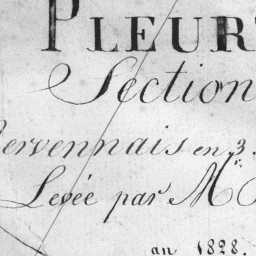 PLEUR
Section
ervennais en 3.
Levée par Mr
an 1828.